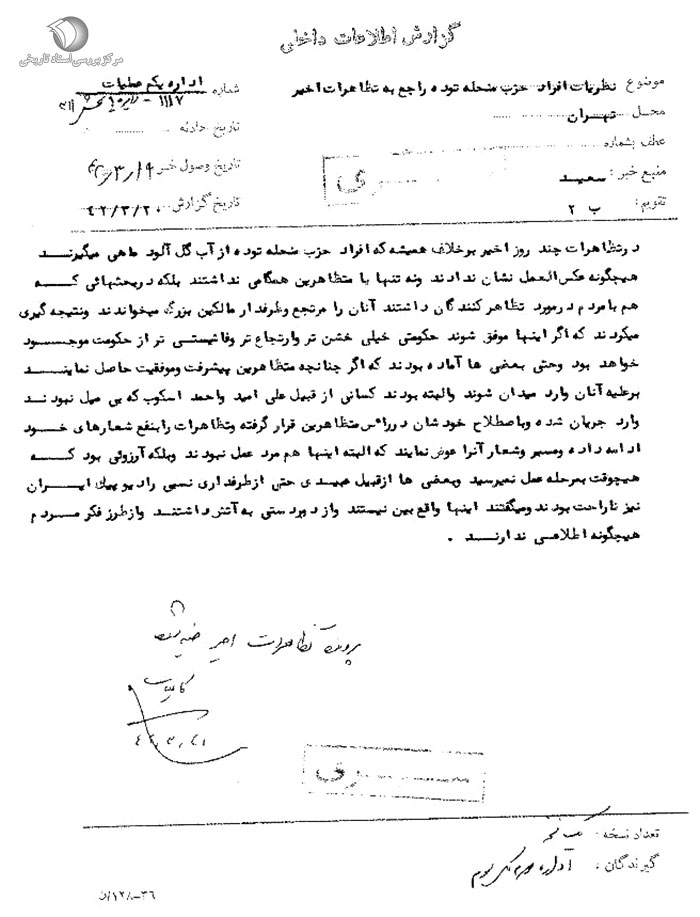 مرکز بررسی اسناد تاریخی
گزارش اطلاعات داخلی
موضوع نظریات افراد حزب منحله توده راجع به تظاهرات اخیر
محل تهران
عطف بشماره
منبع خبر: سعید
تقویم: ب ۲
اداره یکم عملیات
شماره ۱۱۱۷
تاریخ حادثه
تاریخ وصول خبر ۱۹/۳/
تاریخ گزارش ۴۲/۳/۲۰
سری
درتظاهرات چند روز اخیر برخلاف همیشه که افراد حزب منحله توده از آب گل آلود ماهی میگیرند
هیچگونه عکس العمل نشان ندادند ونه تنها با متظاهرین همگامی نداشتند بلکه دربحثهائی که
هم با مردم درمورد تظاهر کنندگان داشتند آنان را مرتجع وطرفدار مالکین بزرگ میخواندند ونتیجه گیری
میکردند که اگر اینها موفق شوند حکومتی خیلی خشن تر وارتجاع تر وفاشیستی تر از حکومت موجود
خواهد بود وحتی بعضی ها آماده بودند که اگر چنانچه متظاهرین پیشرفت وموفقیت حاصل نمایند
برعلیه آنان وارد میدان شوند والبته بودند کسانی از قبیل علی امید واحمد اسکوب که بی میل نبودند
وارد جریان شده وباصطلاح خودشان درراس متظاهرین قرار گرفته وتظاهرات را بنفع شعارهای خود
ادامه داده ومسیر وشعار آنرا عوض نمایند که البته اینها هم مرد عمل نبودند وبلکه آرزوئی بود که
هیچوقت بمرحله عمل نمیرسید وبعضی ها ازقبیل عبیدی حتی ازطرفداری نسبی رادیو پیک ایران
نیز ناراحت بودند ومیگفتند اینها واقع بین نیستند واز دور دستی به آتش داشتند وازطرز فکر مردم
هیچگونه اطلاعی ندارند .
پرونده تظاهرات اخیر ضمیمه شود
۴۲,۳,۲۱
سری
تعداد نسخه:
گیرندگان: اداره کل سوم
۳۶-۱۲۸/ن